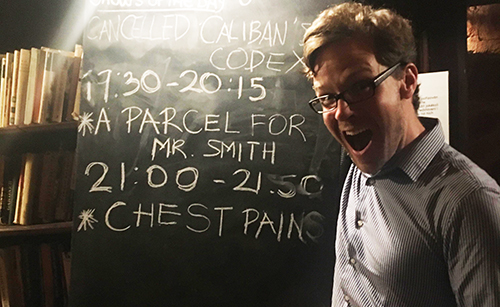 CANCELLED CALIBAN'S
CODEX
17:30-20:15
*A PARCEL FOR
MR. SMITH
21:00-21.50
*CHEST PAINS